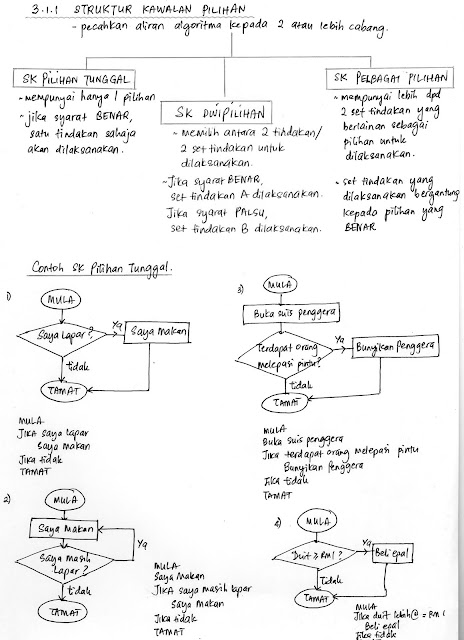 3.1.1 STRUKTUR KAWALAN PILIHAN
- pecahkan aliran algoritma kepada 2 atau lebih cabang.
SK PILIHAN TUNGGAL
- mempunyai hanya 1 pilihan
- jika syarat BENAR,
satu tindakan sahaja
akan dilaksanakan.
SK DWIPILIHAN
- memilih antara 2 tindakan/
2 set tindakan untuk
dilaksanakan.
- Jika syarat BENAR,
set tindakan A dilaksanakan.
Jika syarat PALSU,
set tindakan B dilaksanakan.
SK PELBAGAI PILIHAN
- mempunyai lebih dpd
2 set tindakan yang
berlainan sebagai
pilihan untuk
dilaksanakan.
- set tindakan yang
dilaksanakan bergantung
kepada pilihan yang
BENAR
Contoh SK Pilihan Tunggal.
1)
MULA
Saya lapar?
Ya
Saya makan
tidak
TAMAT
MULA
JIKA saya lapar
Saya makan
Jika tidak
TAMAT
2)
MULA
Saya makan
Saya masih
lapar?
Ya
tidak
TAMAT
MULA
Saya makan
JIKA saya masih lapar
Saya makan
Jika tidak
TAMAT
3)
MULA
Buka suis penggera
Terdapat orang
melepasi pintu?
Ya
Bunyikan Penggera
tidak
TAMAT
MULA
Buka suis penggera
Jika terdapat orang melepasi pintu
Bunyikan Penggera
Jika tidak
TAMAT
4)
MULA
Duit ≥ RM1?
Ya
Beli epal
Tidak
TAMAT
MULA
Jika duit lebih @ = RM1
Beli epal
Jika tidak